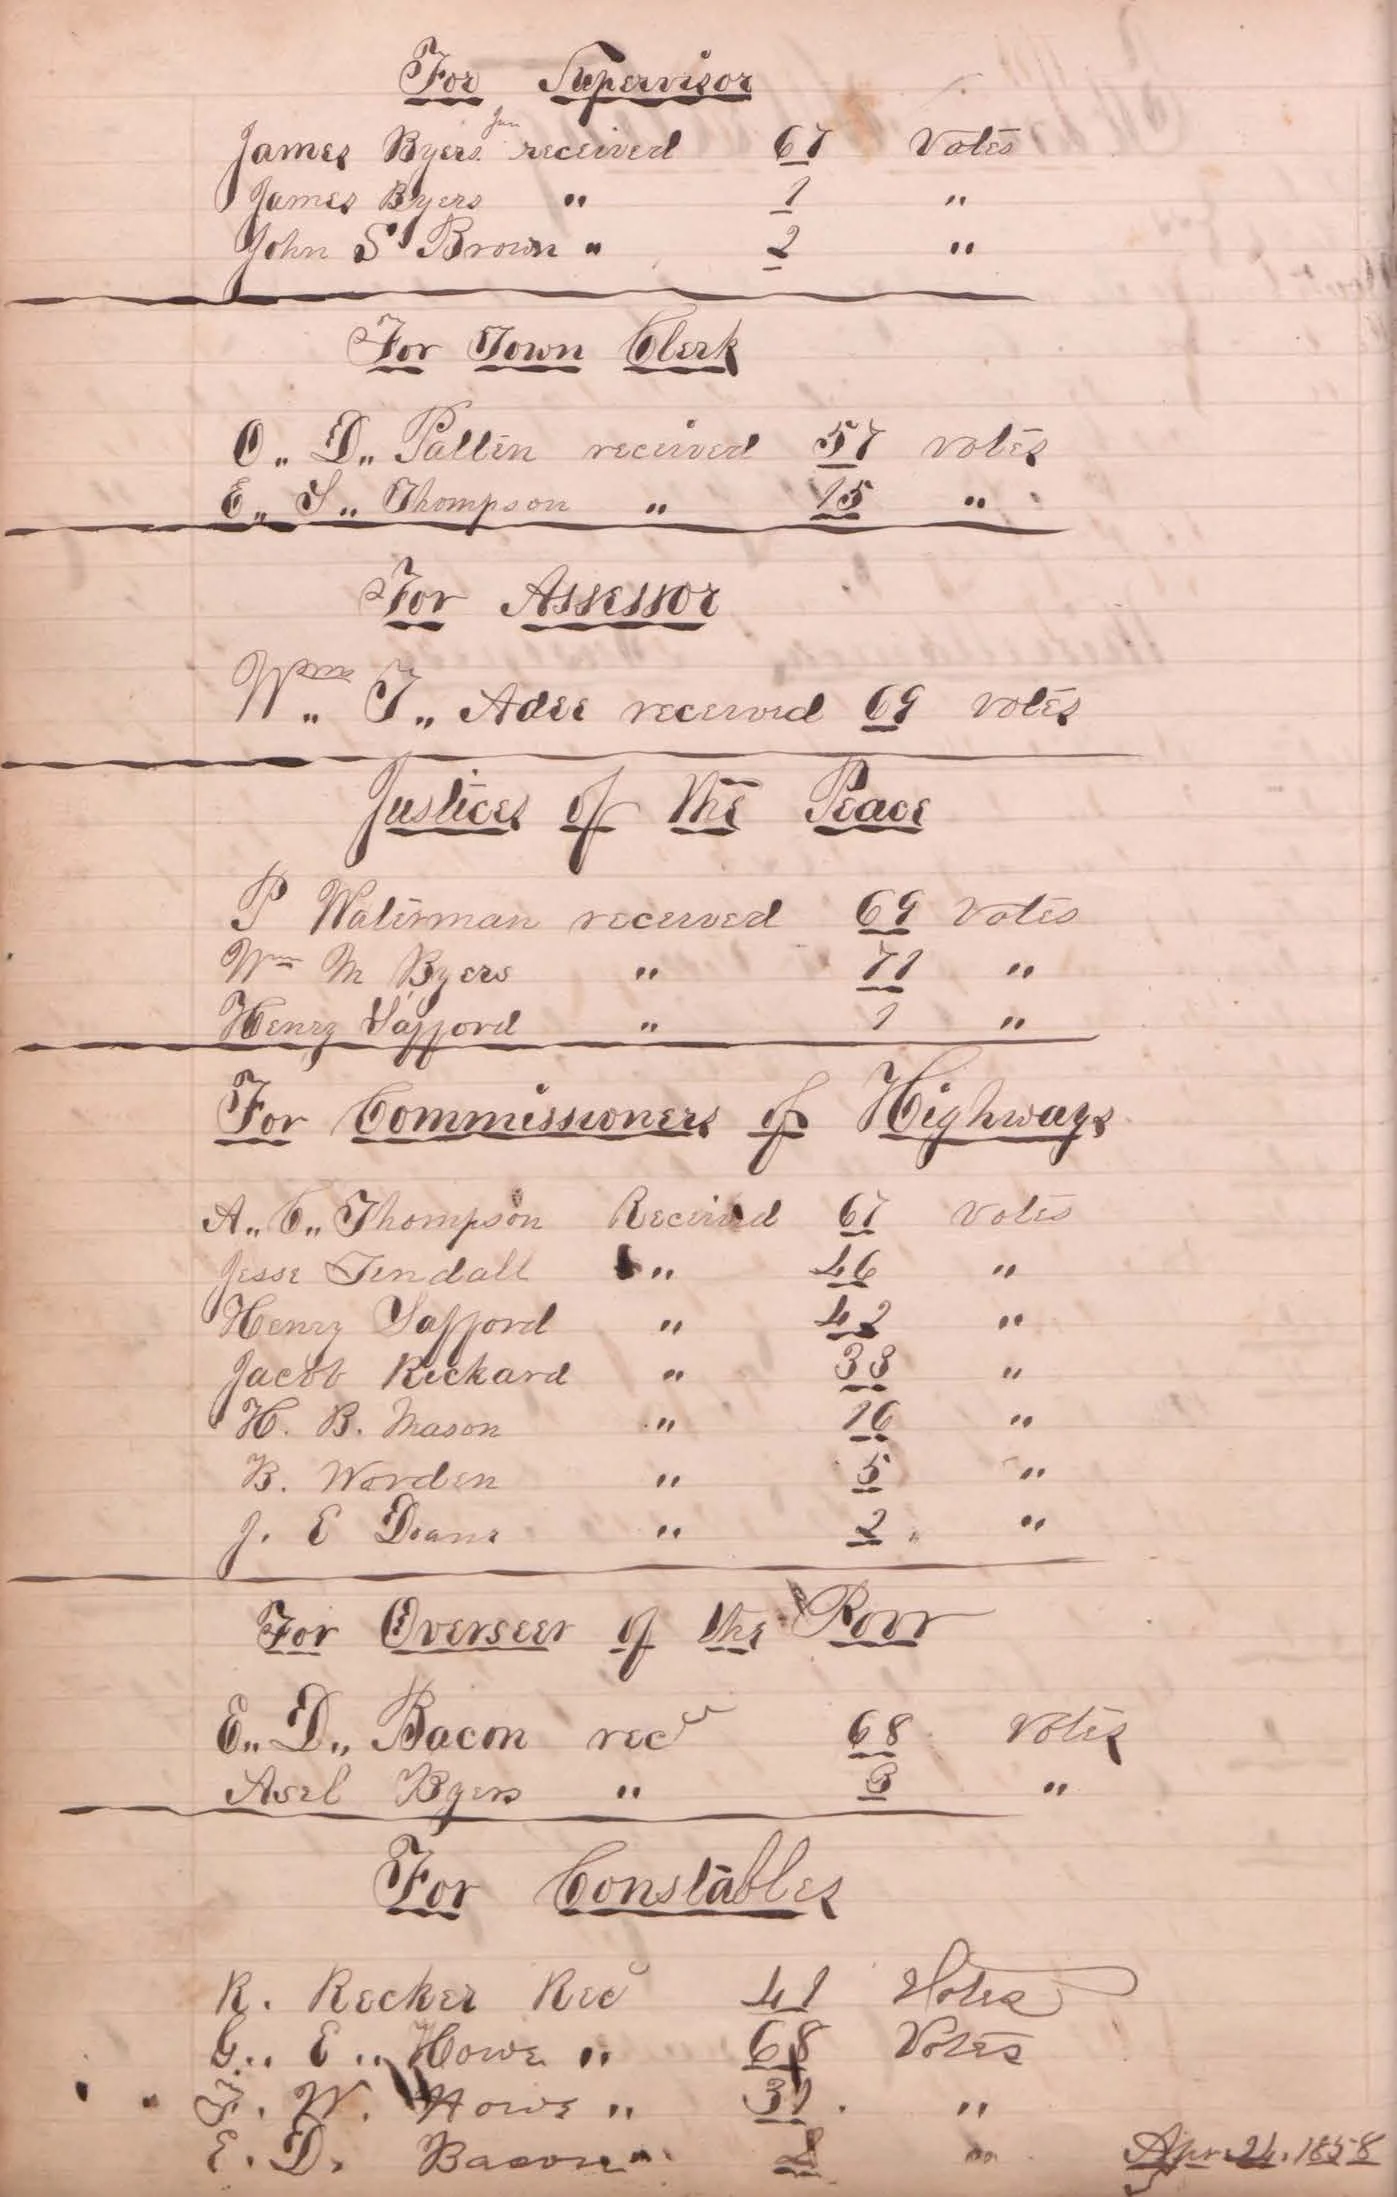 For Supervisor
James Byers Jun received 67 Votes
James Byers " 1 "
John S Brown " 2 "
For Town Clerk
O,, D,, Patten received 57 votes
E,, S,, Thompson " 15 "
For Assessor
Wm,, T,, Adee received 69 votes
Justices of the Peace
P Waterman received 69 Votes
Wm M Byers " 71 "
Henry Safford " 1 "
For Commissioners of Highways
A,, C,, Thompson Received 67 Votes
Jesse Tendall " 46 "
Henry Safford " 42 "
Jacob Rickard " 33 "
H. B. Mason " 16 "
B. Worden " 5 "
J. E Deane " 2 "
For Overseer of the Poor
E,, D,, Bacon recd 68 Votes
Asel Byers " 3 "
For Constables
R. Recker Rec 41 Votes
G,, E,, Howe " 68 Votes
F. W. Howe " 31 "
E. D. Bacon " "
Apr. 24. 1858